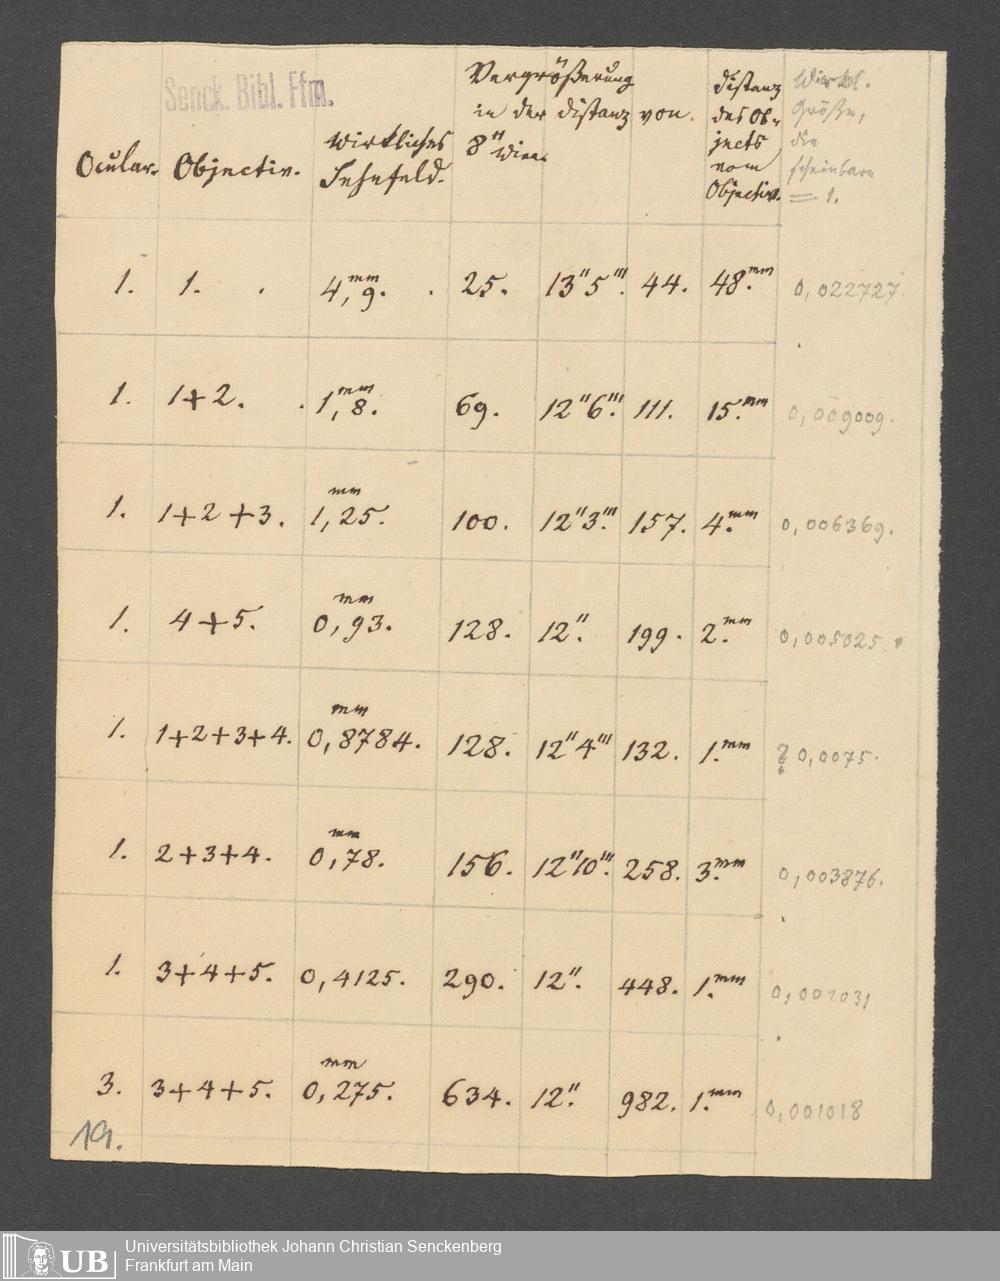 Senck. Bibl. Ffm.
Ocular. Objectiv. wirkliches Sehefeld. Vergrößerung in der distanz von. distanz des Objects vom Objectiv. Wirkl. Größe, die scheinbare = 1.
8" Wien.
1. 1. 4,9.mm 25. 13"5'''. 44. 48.mm 0,022727.
1. 1+2. 1,8.mm 69. 12"6'''. 111. 15.mm 0,009009.
1. 1+2+3. 1,25.mm 100. 12"3'''. 157. 4.mm 0,006369.
1. 4+5. 0,93.mm 128. 12". 199. 2.mm 0,005025.
1. 1+2+3+4. 0,8784.mm 128. 12"4''' 132. 1.mm ? 0,0075.
1. 2+3+4. 0,78.mm 156. 12"10'''. 258. 3.mm 0,003876.
1. 3+4+5. 0,4125. 290. 12". 448. 1.mm 0,002031
3. 3+4+5. 0,275.mm 634. 12". 982. 1.mm 0,001018
19.
UB
Universitätsbibliothek Johann Christian Senckenberg
Frankfurt am Main